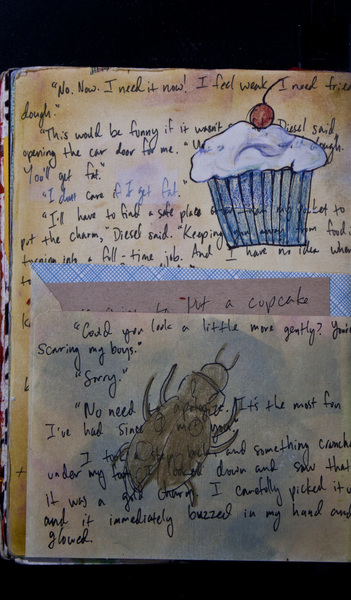 "No. Now. I need it now! I feel weak. I need fried
dough."
"This would be funny if it wasn't Diesel said,
opening the car door for me. dough.
You'll get fat."
"I don't care if I get fat."
"I'll have to find a safe place pocket to
put the charm," Diesel said. "Keeping you away from food is
turning into a full-time job. And I have no idea where
to put a cupcake
"Could you look a little more gently? You're
scaring my boys."
"Sorry."
"No need apologize. It's the most fun
I've had since you."
I took a step back and something crunched
under my foot. I looked down and saw that
it was a gold charm. I carefully picked it up
and it immediately buzzed in my hand and
glowed.